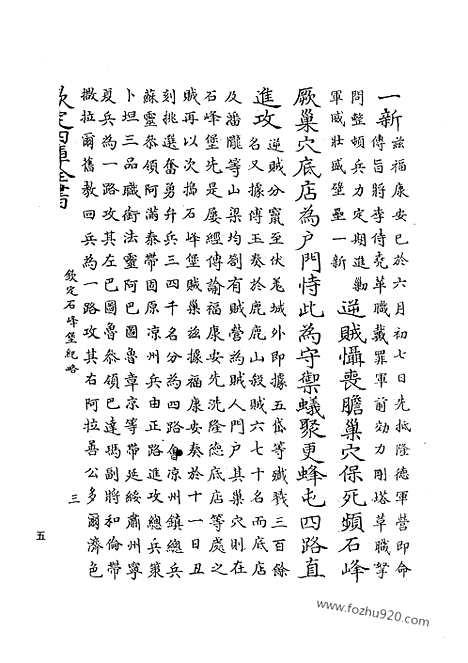 一新
茲福康安已於六月初七日先抵隆德軍營即命
傳旨將李侍堯革職戴罪軍前効力剛塔革職拏
問整頓兵力定期進勦
軍威壯盛壁壘一新
逆賊懾喪膽巢穴保死頻石峰
厥巢穴底店為户門恃此為守禦蟻聚更蜂屯四路直
進攻
逆賊分竄至伏羗城外即據五岱等殱戮三百餘
名又據傅玉奏於鹿鹿山殺賊六七十名而底店
及潘隴等山梁均劄有賊營為賊人門户其巢穴則在
石峰堡先是屢經傳諭福康安先洗隆德底店等處之
賊再以次搗石峰堡賊巢茲據福康安奏於十一日丑
刻挑選奮勇弁兵三四千名分為四路會凉州鎮總兵
蘇靈叅領阿滿泰帶固原凉州兵由正路進攻總兵策
卜坦三品職銜法靈阿巴圖魯章京等帶延綏肅州寧
夏兵為一路攻其左巴圖魯叅領巴達瑪副將和倫帶
撒拉爾舊教回兵為一路攻其右阿拉善公多爾濟色
欽定四庫全書
欽定石峰堡紀略
三
五
www.fozhu920.com